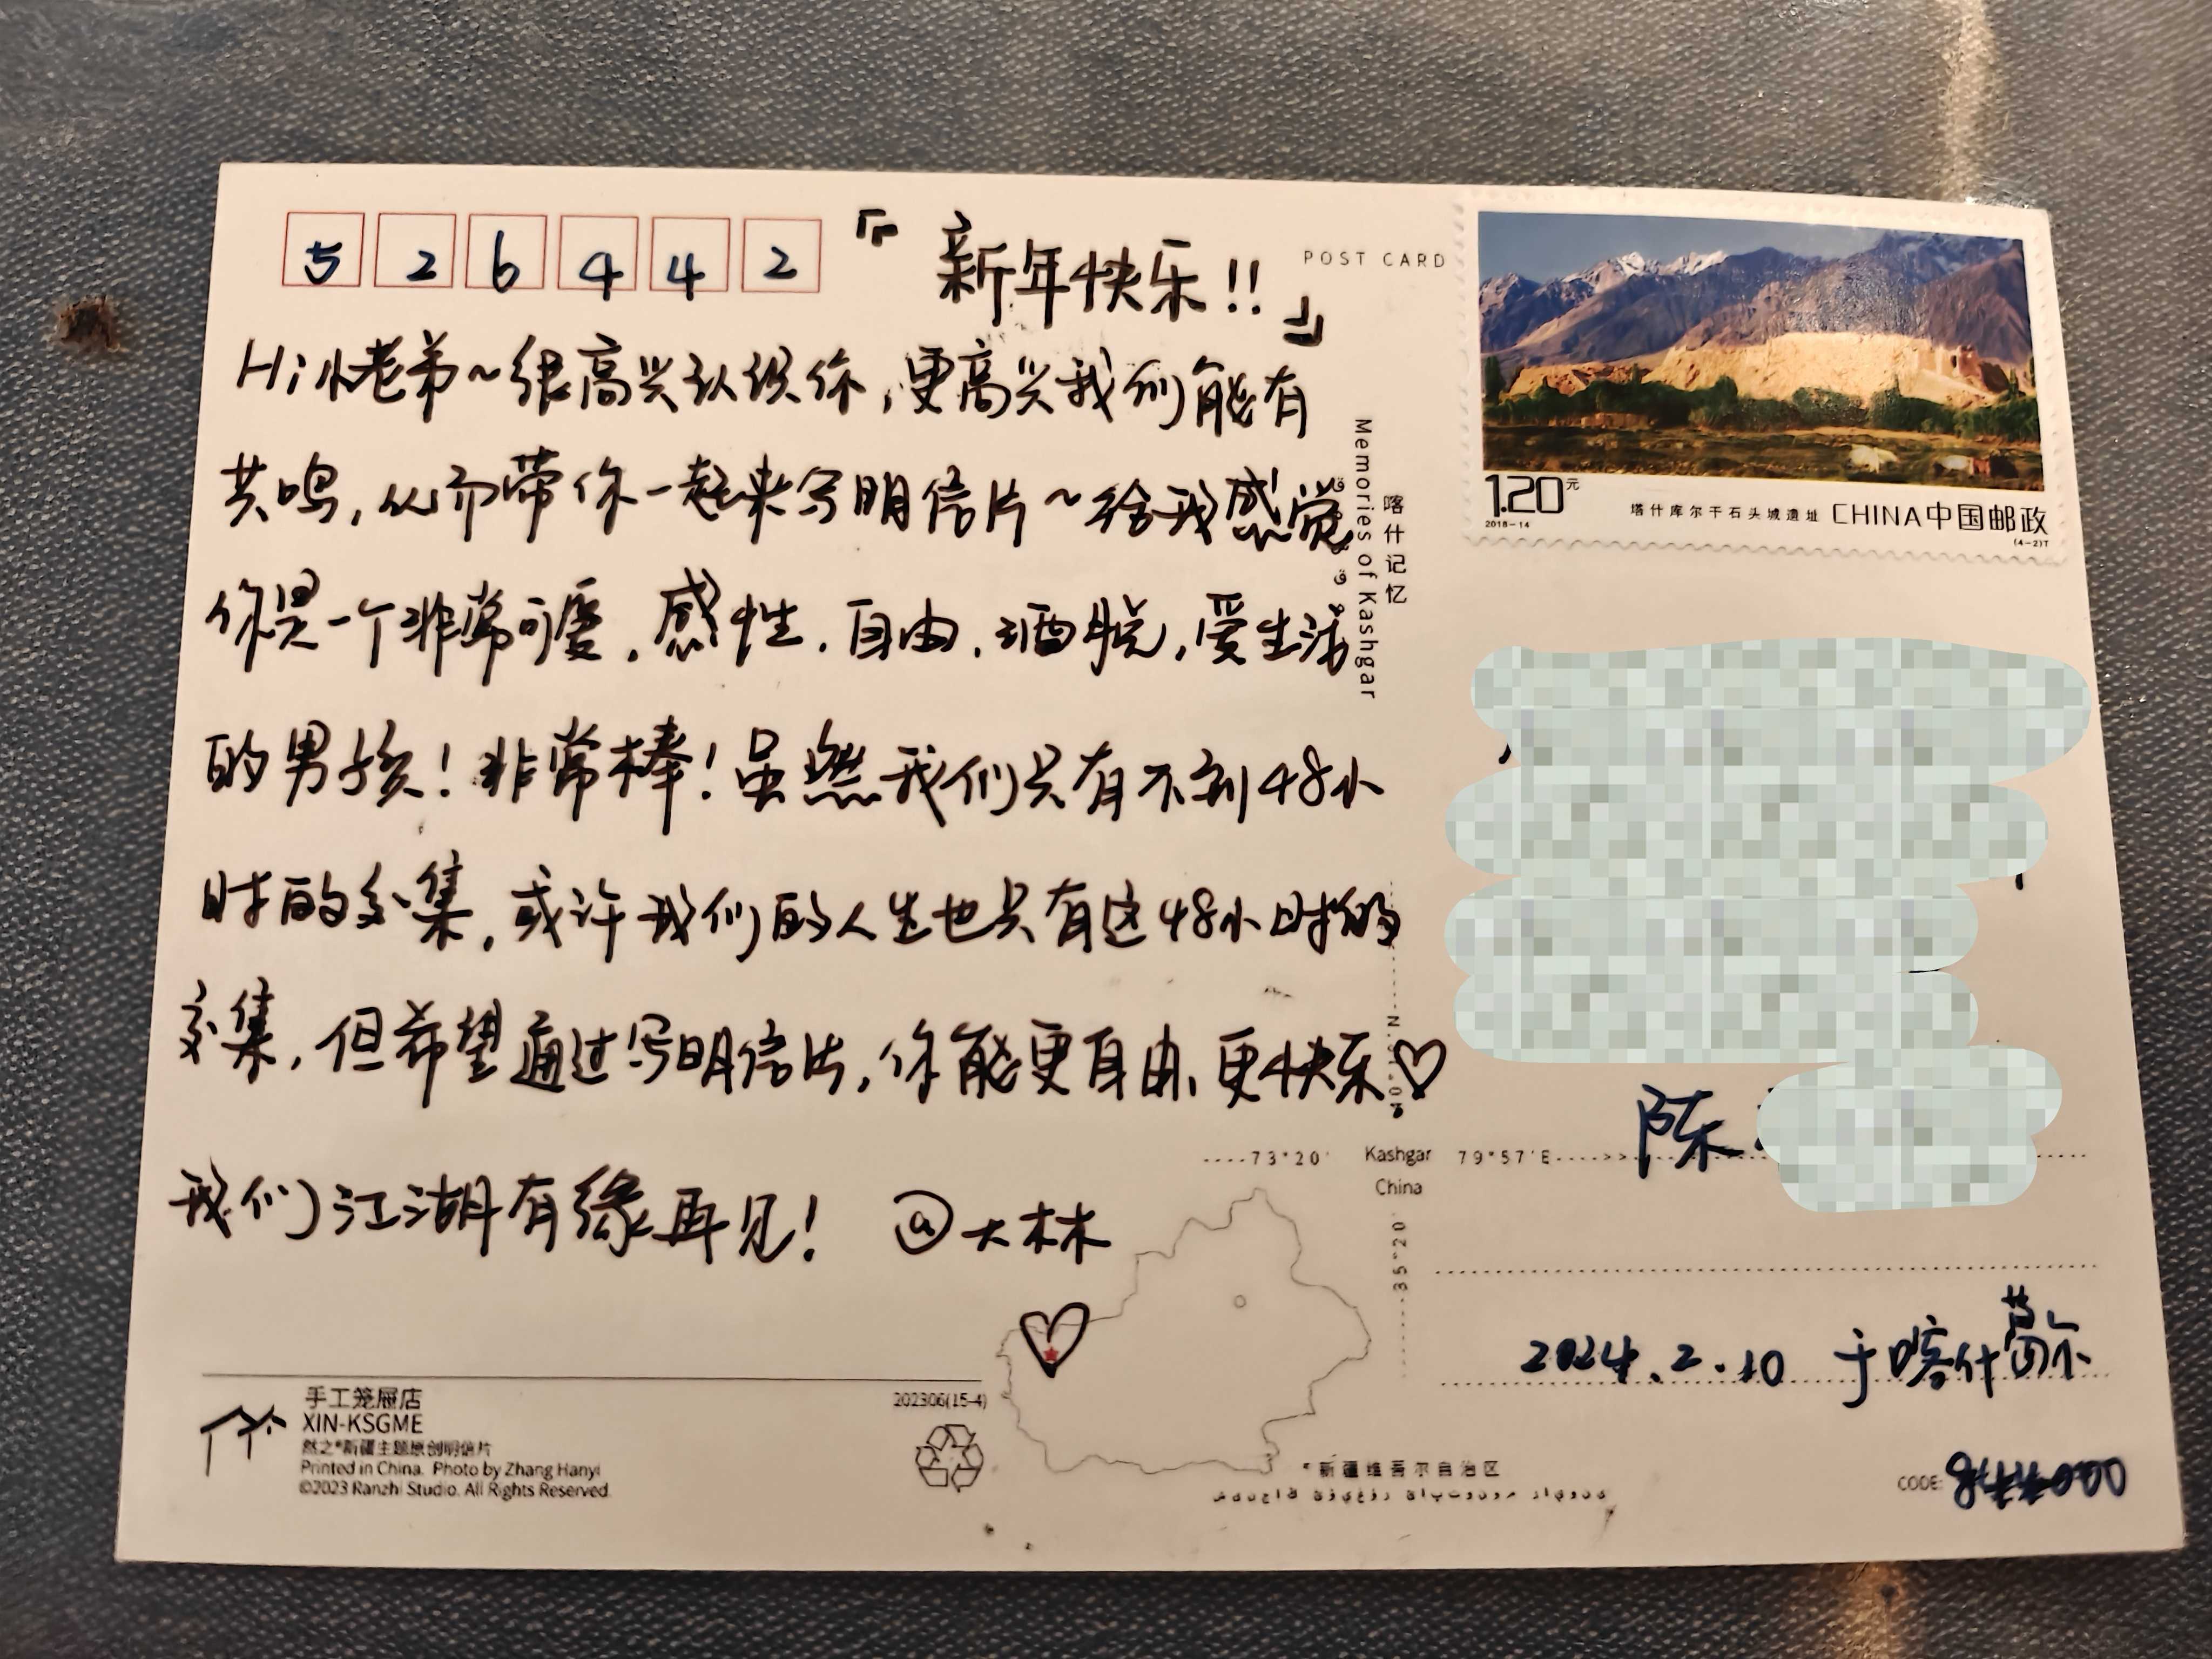 526442
『新年快乐!!』
POST CARD
Hi小老弟~很高兴认识你,更高兴我们能有
共鸣,从而带你一起来写明信片~给我感觉
你是一个非常可爱,感性,自由,洒脱,爱生活
的男孩!非常棒!虽然我们只有不到48小
时的交集,或许我们的人生也只有这48小时的
交集,但希望通过写明信片,你能更自由、更快乐♡
我们江湖有缘再见! @大林
喀什记忆
Memories of Kashgar
1.20元
2018-14
塔什库尔干石头城遗址 CHINA中国邮政
(4-2)T
陈
73°20' Kashgar 79°57'E
China
35°20'
2024.2.10 于喀什葛尔
手工笼屉店
XIN-KSGME
然之*新疆主题原创明信片
Printed in China. Photo by Zhang Hanyi
©2023 Ranzhi Studio. All Rights Reserved.
202306(15-4)
新疆维吾尔自治区
CODE: